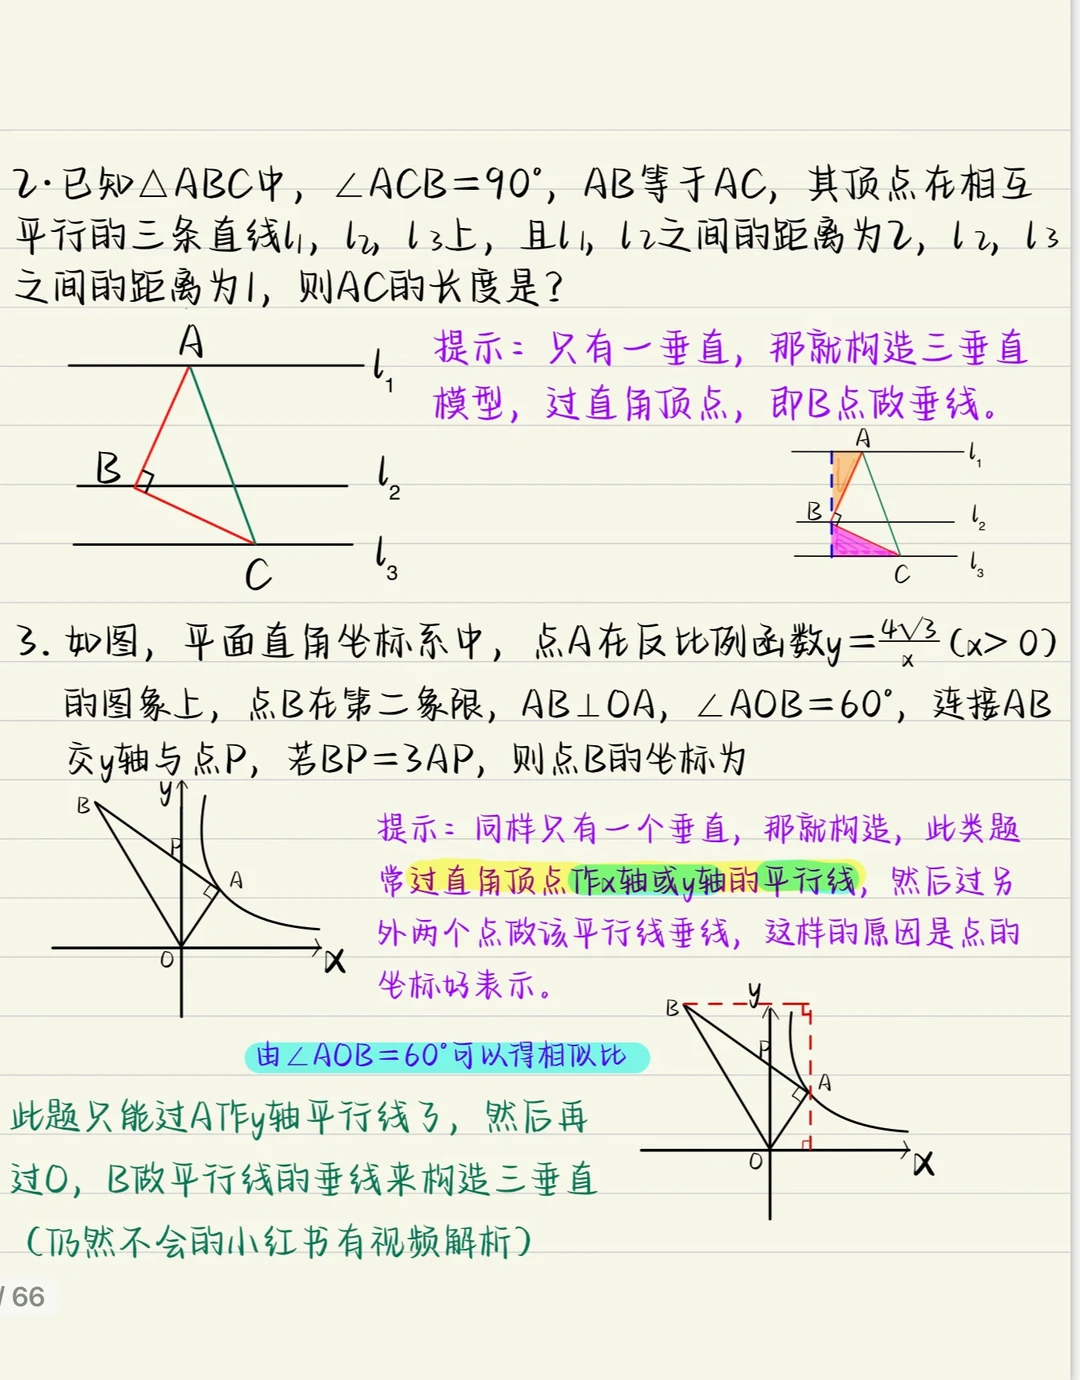 2.已知△ABC中，∠ACB=90°，AB等于AC，其顶点在相互
平行的三条直线l₁，l₂，l₃上，且l₁，l₂之间的距离为2，l₂，l₃
之间的距离为1，则AC的长度是？
A
l₁
B
l₂
C
l₃
提示：只有一垂直，那就构造三垂直
模型，过直角顶点，即B点做垂线。
A
l₁
B
l₂
C
l₃
3. 如图，平面直角坐标系中，点A在反比例函数y=4√3/x (x>0)
的图象上，点B在第二象限，AB⊥OA，∠AOB=60°，连接AB
交y轴与点P，若BP=3AP，则点B的坐标为
B
y
P
A
O
x
提示：同样只有一个垂直，那就构造，此类题
常过直角顶点作x轴或y轴的平行线，然后过另
外两个点做该平行线垂线，这样的原因是点的
坐标好表示。
B
y
P
A
O
x
由∠AOB=60°可以得相似比
此题只能过A作y轴平行线了，然后再
过O，B做平行线的垂线来构造三垂直
（仍然不会的小红书有视频解析）
/ 66